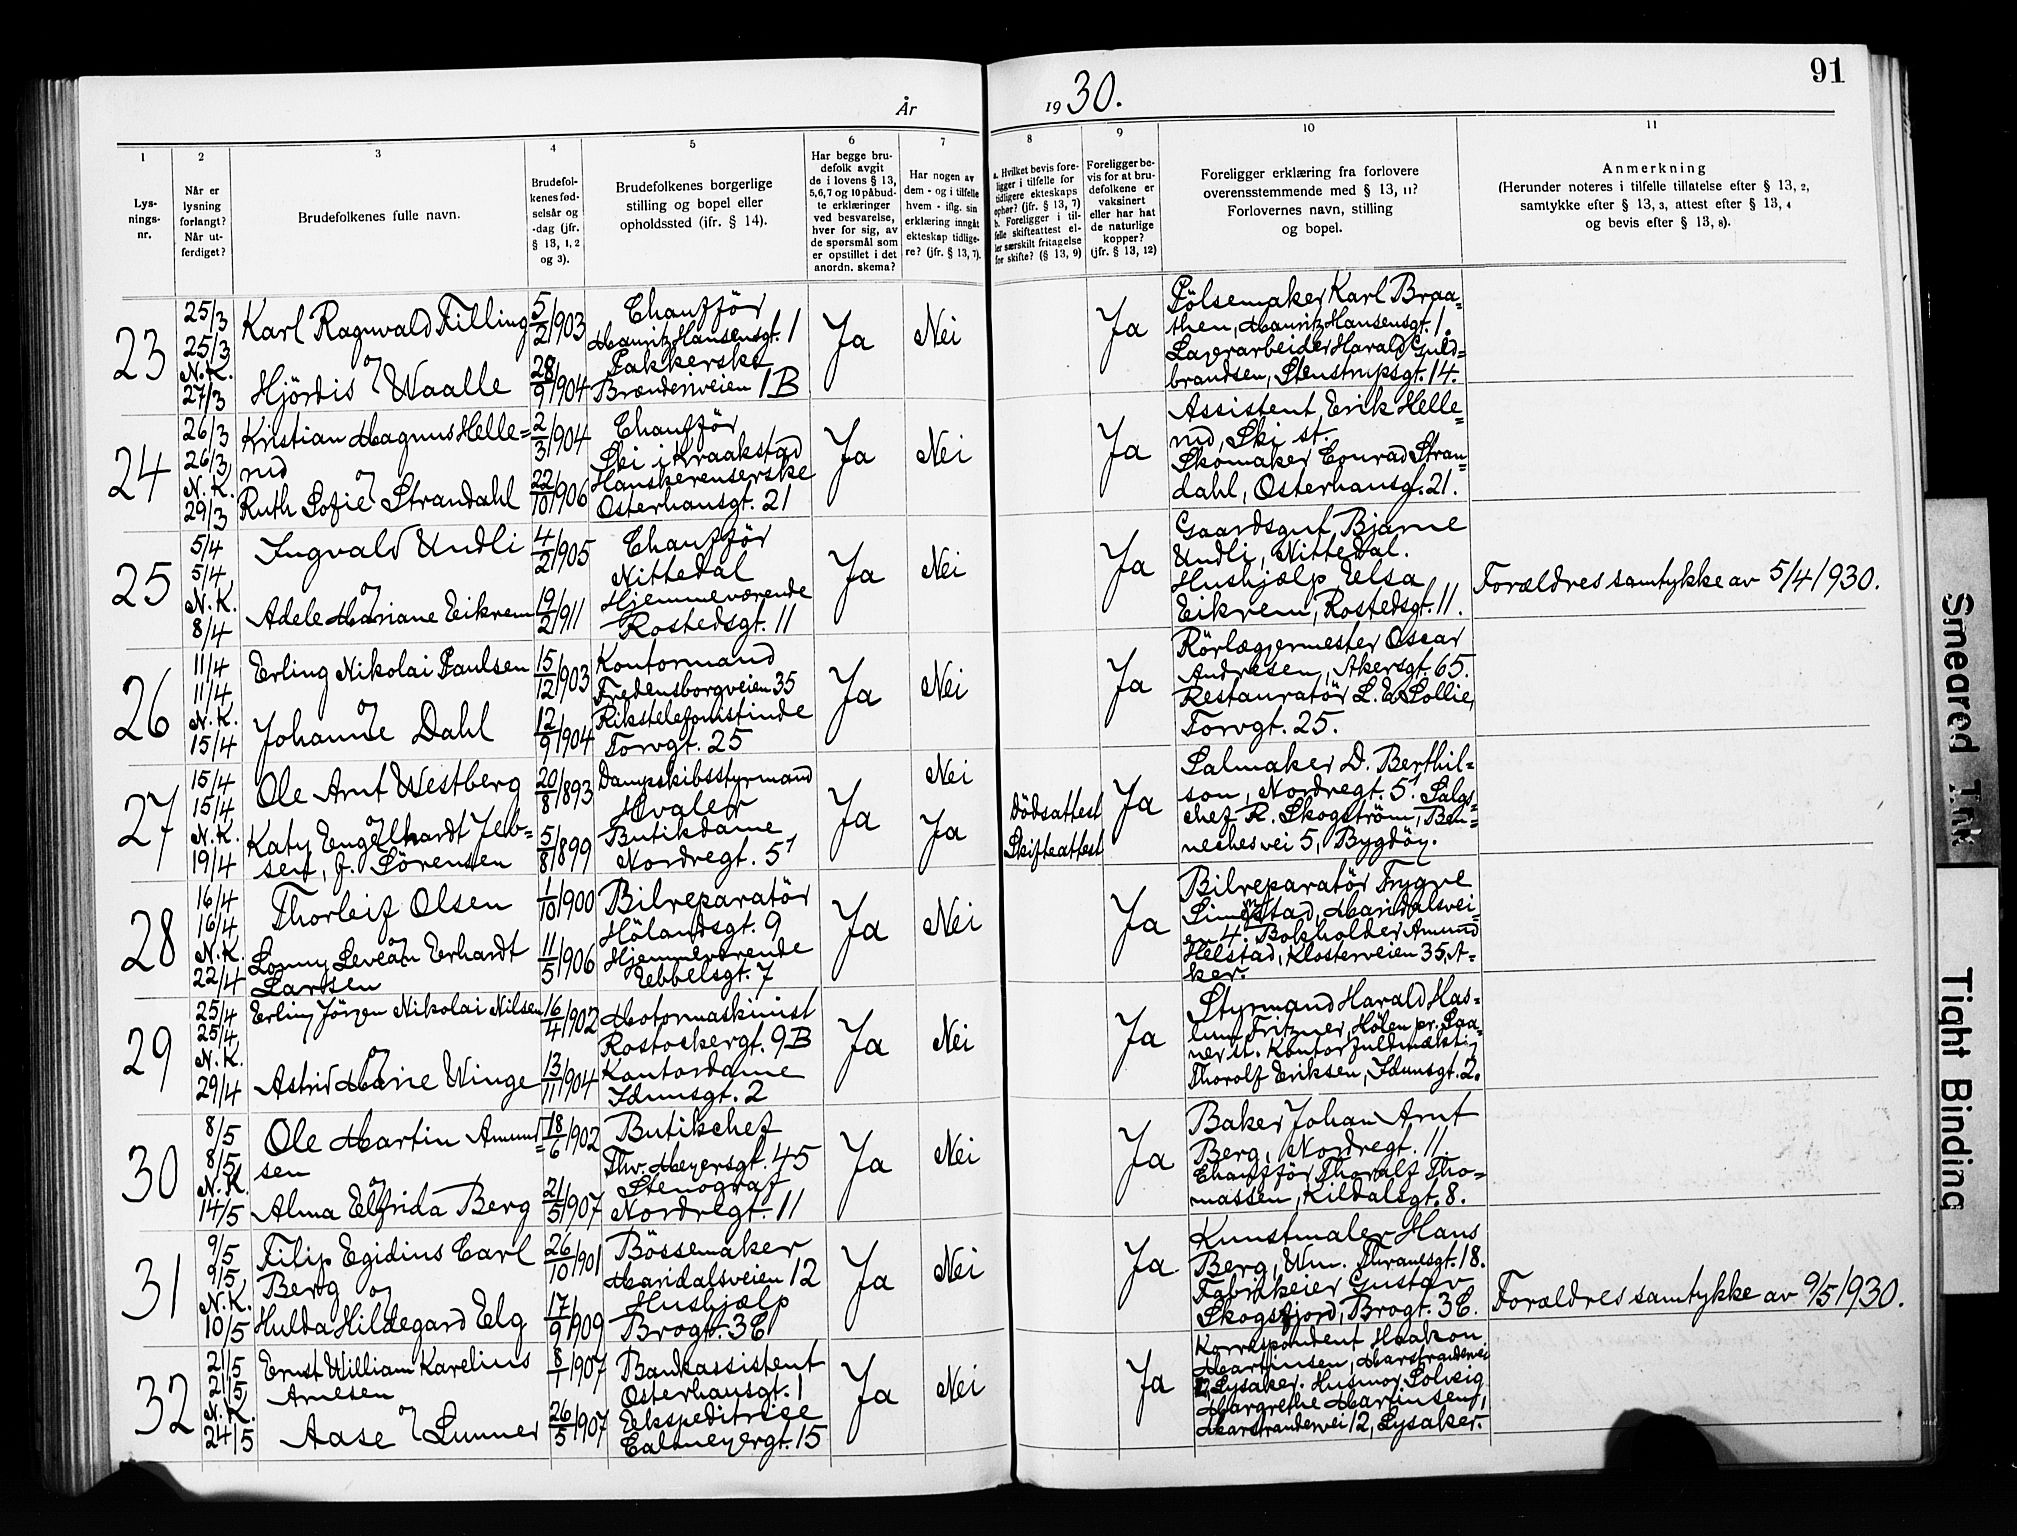 91
År 1930.
1
2
3
4
5
6
7
8
9
10
11
Lys-
nings-
nr.
Når er
lysning
forlangt?
Når ut-
ferdiget?
Brudefolkenes fulle navn.
Brudefol-
kenes fød-
selsår og
-dag (jfr.
§ 13, 1, 2
og 3).
Brudefolkenes borgerlige
stilling og bopel eller
opholdssted (ifr. § 14).
Har begge bru-
defolk avgit
de i lovens § 13,
5,6,7 og 10 påbud-
te erklæringer
ved besvarelse,
hver for sig, av
de spørsmål som
er opstillet i det
anordn. skema?
Har nogen av
dem - og i tilfelle
hvem - iflg. sin
erklæring inngåt
ekteskap tidlige-
re? (jfr. § 13, 7).
a. Hvilket bevis fore-
ligger i tilfelle for
tidligere ekteskaps
ophør? (jfr. § 13, 7)
b. Foreligger i til-
felle skifteattest el-
ler særskilt fritagelse
for skifte? (§ 13, 9)
Foreligger be-
vis for at bru-
defolkene er
vaksinert
eller har hat
de naturlige
kopper?
(jfr. § 13, 12)
Foreligger erklæring fra forlovere
overensstemmende med § 13, 11?
Forlovernes navn, stilling
og bopel.
Anmerkning
(Herunder noteres i tilfelle tillatelse efter § 13, 2,
samtykke efter § 13, 3, attest efter § 13, 4
og bevis efter § 13, 8).
23
25/3
25/3
N.K.
27/3
Karl Ragnvald Filling
og
Hjördis Waalle
5/2 1903
28/9 1904
Chaufför
Mauritz Hansensgt. 1
Pakkerske
Brænderiveien 1B
Ja
Nei
Ja
Pölsemaker Karl Braa=
then, Mauritz Hansensgt. 1.
Lagerarbeider Harald Guld=
brandsen, Stenstrupsgt. 14.
24
26/3
26/3
N.K.
29/3
Kristian Magnus Helle=
rud
og
Ruth Sofie Strandahl
2/3 1904
22/10 1906
Chaufför
Ski i Kraakstad
Hanskerenserske
Osterhausgt. 21
Ja
Nei
Ja
Assistent Erik Helle=
rud, Ski st.
Skomaker Conrad Stran=
dahl, Osterhausg. 21.
25
5/4
5/4
N.K.
8/4
Ingvald Undli
og
Adele Mariane Eikrem
4/2 1905
19/2 1911
Chaufför
Nittedal
Hjemmeværende
Rostedsgt. 11
Ja
Nei
Ja
Gaardsgut Bjarne
Undli, Nittedal.
Hushjælp Elsa
Eikrem, Rostedsgt. 11.
Forældres samtykke av 5/4 1930.
26
11/4
11/4
N.K.
15/4
Erling Nikolai Paulsen
og
Johanne Dahl
15/12 1903
12/9 1904
Kontormand
Fredensborgveien 35
Rikstelefonistinde
Torvgt. 25
Ja
Nei
Ja
Rörlæggermester Oscar
Andresen, Akersgt. 65.
Restauratör L. E. Sollie,
Torvgt. 25.
27
15/4
15/4
N.K.
19/4
Ole Arnt Westberg
og
Katy Engelhardt Jeb=
sen, f. Sörensen
20/8 1893
5/8 1899
Dampskibsstyrmand
Hvaler
Butikdame
Nordregt. 5
Ja
Nei
Ja
Dödsattest
Skifteattest
Ja
Salmaker D. Berthil=
son, Nordregt. 5. Salgs=
chef R. Skogström, Ben=
neches vei 5, Bygdöy.
28
16/4
16/4
N.K.
22/4
Thorleif Olsen
og
Lonny Erhardt
Larsen
1/10 1900
11/5 1906
Bilreparatör
Hölandsgt. 9
Hjemmeværende
Ebbelsgt. 7
Ja
Nei
Ja
Bilreparatör Trygve
Simestad, Maridalsvei=
en 4. Bokholder Amund
Helstad, Klosterveien 35, A=
ker.
29
25/4
25/4
N.K.
29/4
Erling Jörgen Nikolai Nilsen
og
Astrid Marie Winge
16/4 1902
13/11 1904
Motormaskinist
Rostockergt. 9B
Kontordame
Idunsgt. 2
Ja
Nei
Ja
Styrmand Harald Has=
lum Fritzner, Hölen pr. Saa=
ner st. Kontorfuldmæktig
Thorolf Eriksen, Idunsgt. 2.
30
8/5
8/5
N.K.
14/5
Ole Martin Amund=
sen
og
Alma Elfrida Berg
18/6 1902
21/5 1907
Butikchef
Thv. Meyersgt. 45
Stenograf
Nordregt. 11
Ja
Nei
Ja
Baker Johan Arnt
Berg, Nordregt. 11.
Chaufför Thoralf Tho=
massen, Kildalsgt. 8.
31
9/5
9/5
N.K.
10/5
Filip Egidius Carl
Berg og
Hulda Hildegard Elg
26/10 1901
17/9 1909
Bössemaker
Maridalsveien 12
Hushjælp
Brogt. 3C
Ja
Nei
Ja
Kunstmaler Hans
Berg, Wm. Thranesgt. 18.
Fabrikeier Gustav
Skogsfjord, Brogt. 3C.
Forældres samtykke av 9/5 1930.
32
21/5
21/5
N.K.
24/5
Ernst William Karelius
Arnesen
og
Aase Lunner
8/1 1907
26/5 1907
Bankassistent
Osterhausgt. 1
Ekspeditrice
Calmeyergt. 15
Ja
Nei
Ja
Korrespondent Haakon
Martinsen, Marstrandervei
12, Lysaker. Husmor Solveig
Margrethe Martinsen,
Marstrandervei 12, Lysaker.
Smeared Ink
Tight Binding